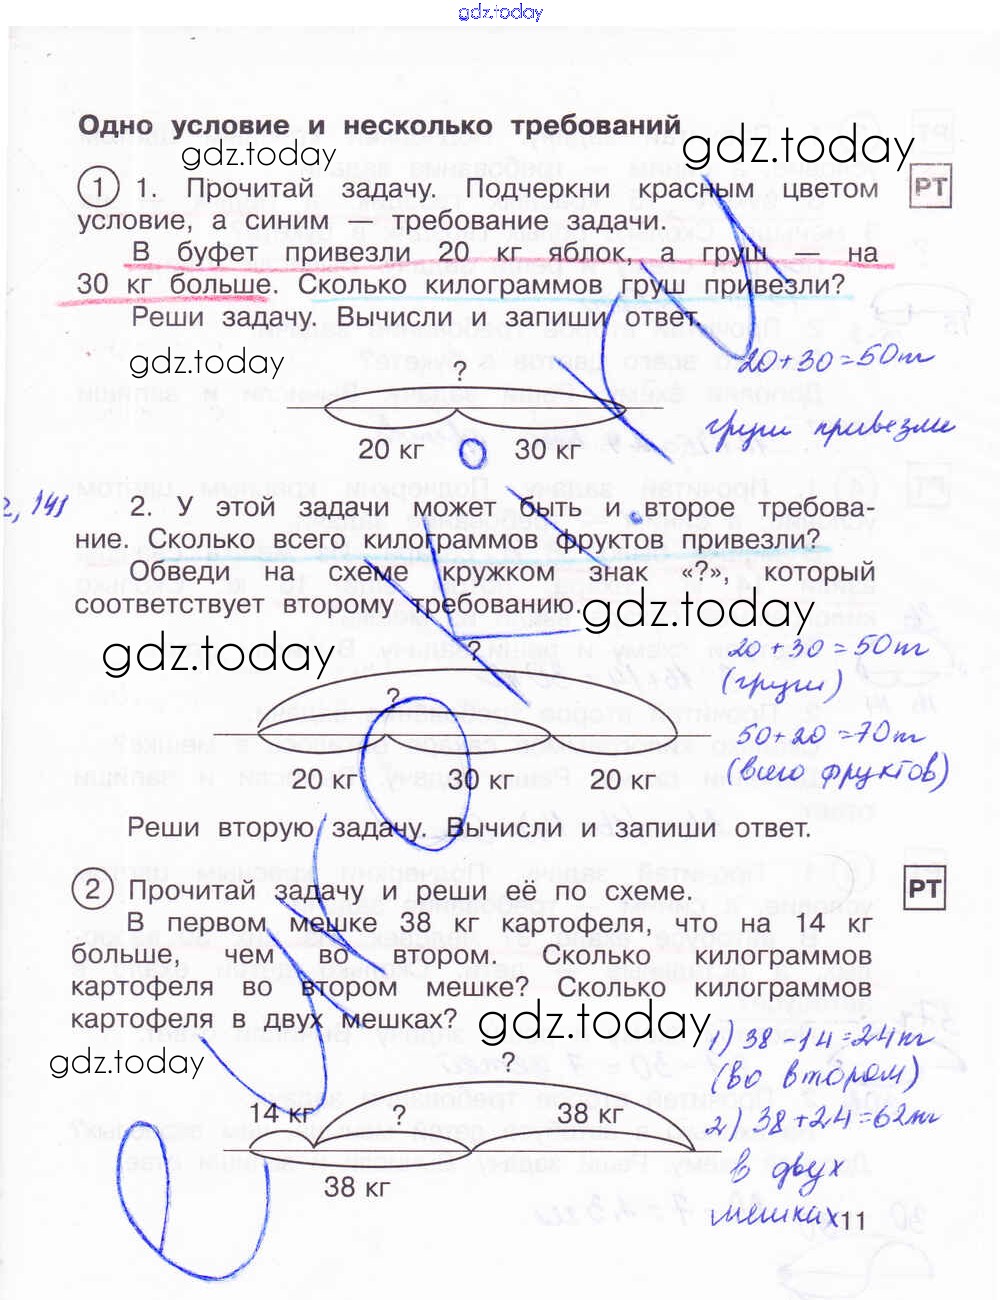 gdz.today
Одно условие и несколько требований
gdz.today
gdz.today
1 1. Прочитай задачу. Подчеркни красным цветом
РТ
условие, а синим — требование задачи.
В буфет привезли 20 кг яблок, а груш — на
30 кг больше. Сколько килограммов груш привезли?
Реши задачу. Вычисли и запиши ответ.
gdz.today
20+30=50кг
?
груш привезли
20 кг 30 кг
2. У этой задачи может быть и второе требова-
ние. Сколько всего килограммов фруктов привезли?
Обведи на схеме кружком знак «?», который
соответствует второму требованию.
gdz.today
gdz.today
?
20+30=50кг
(груш)
?
50+20=70кг
20 кг 30 кг 20 кг
(всего фруктов)
Реши вторую задачу. Вычисли и запиши ответ.
2 Прочитай задачу и реши её по схеме.
РТ
В первом мешке 38 кг картофеля, что на 14 кг
больше, чем во втором. Сколько килограммов
картофеля во втором мешке? Сколько килограммов
картофеля в двух мешках?
gdz.today
gdz.today
1) 38-14=24кг
(во втором)
?
14 кг ? 38 кг
2) 38+24=62кг
38 кг
в двух
мешках
11